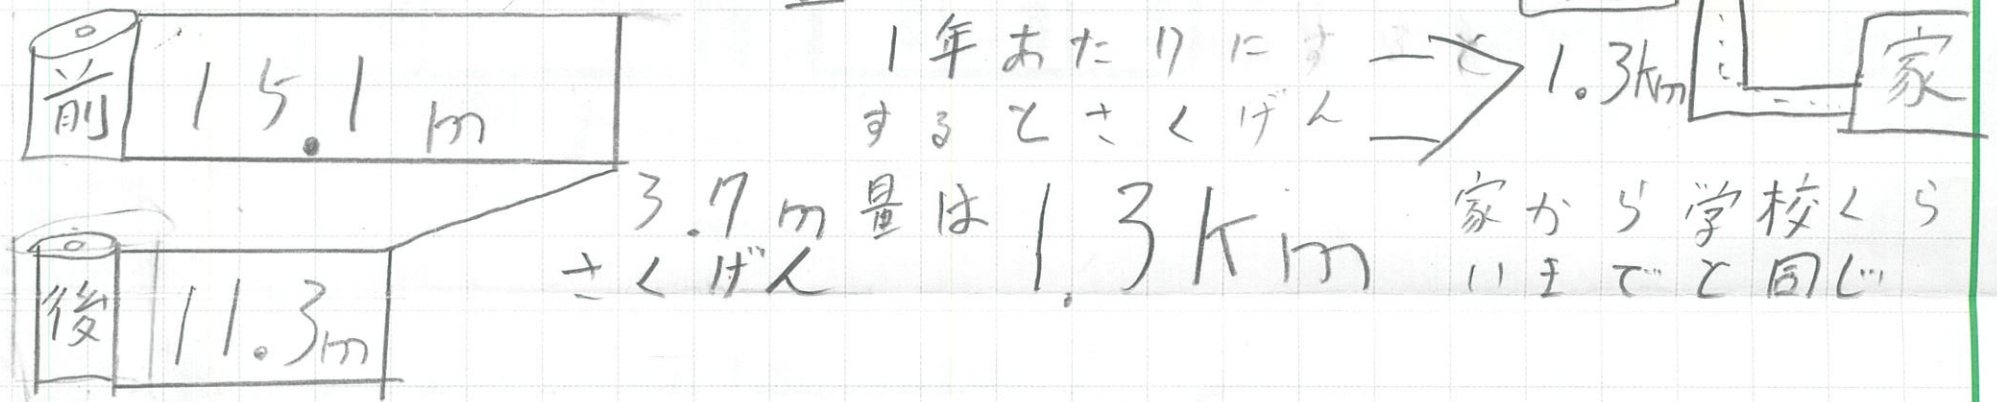 前 15.1m
後 11.3m
3.7m
さくげん
1年あたりにす
するとさくげん
量は 1.3km
1.3km
家
家から学校くら
いまでと同じ